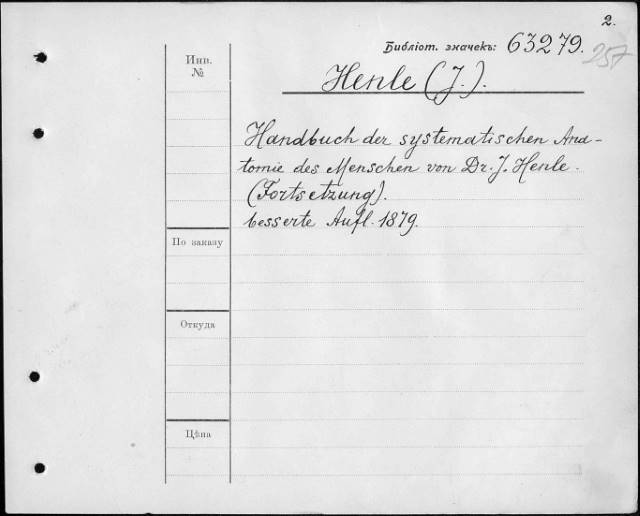 2.
Библіот. значекъ: 63279.
257
Инв.
№
Henle (J.).
Handbuch der systematischen Ana-
tomie des Menschen von Dr. J. Henle.
(Fortsetzung).
besserte Aufl. 1879.
По заказу
Откуда
Цѣна